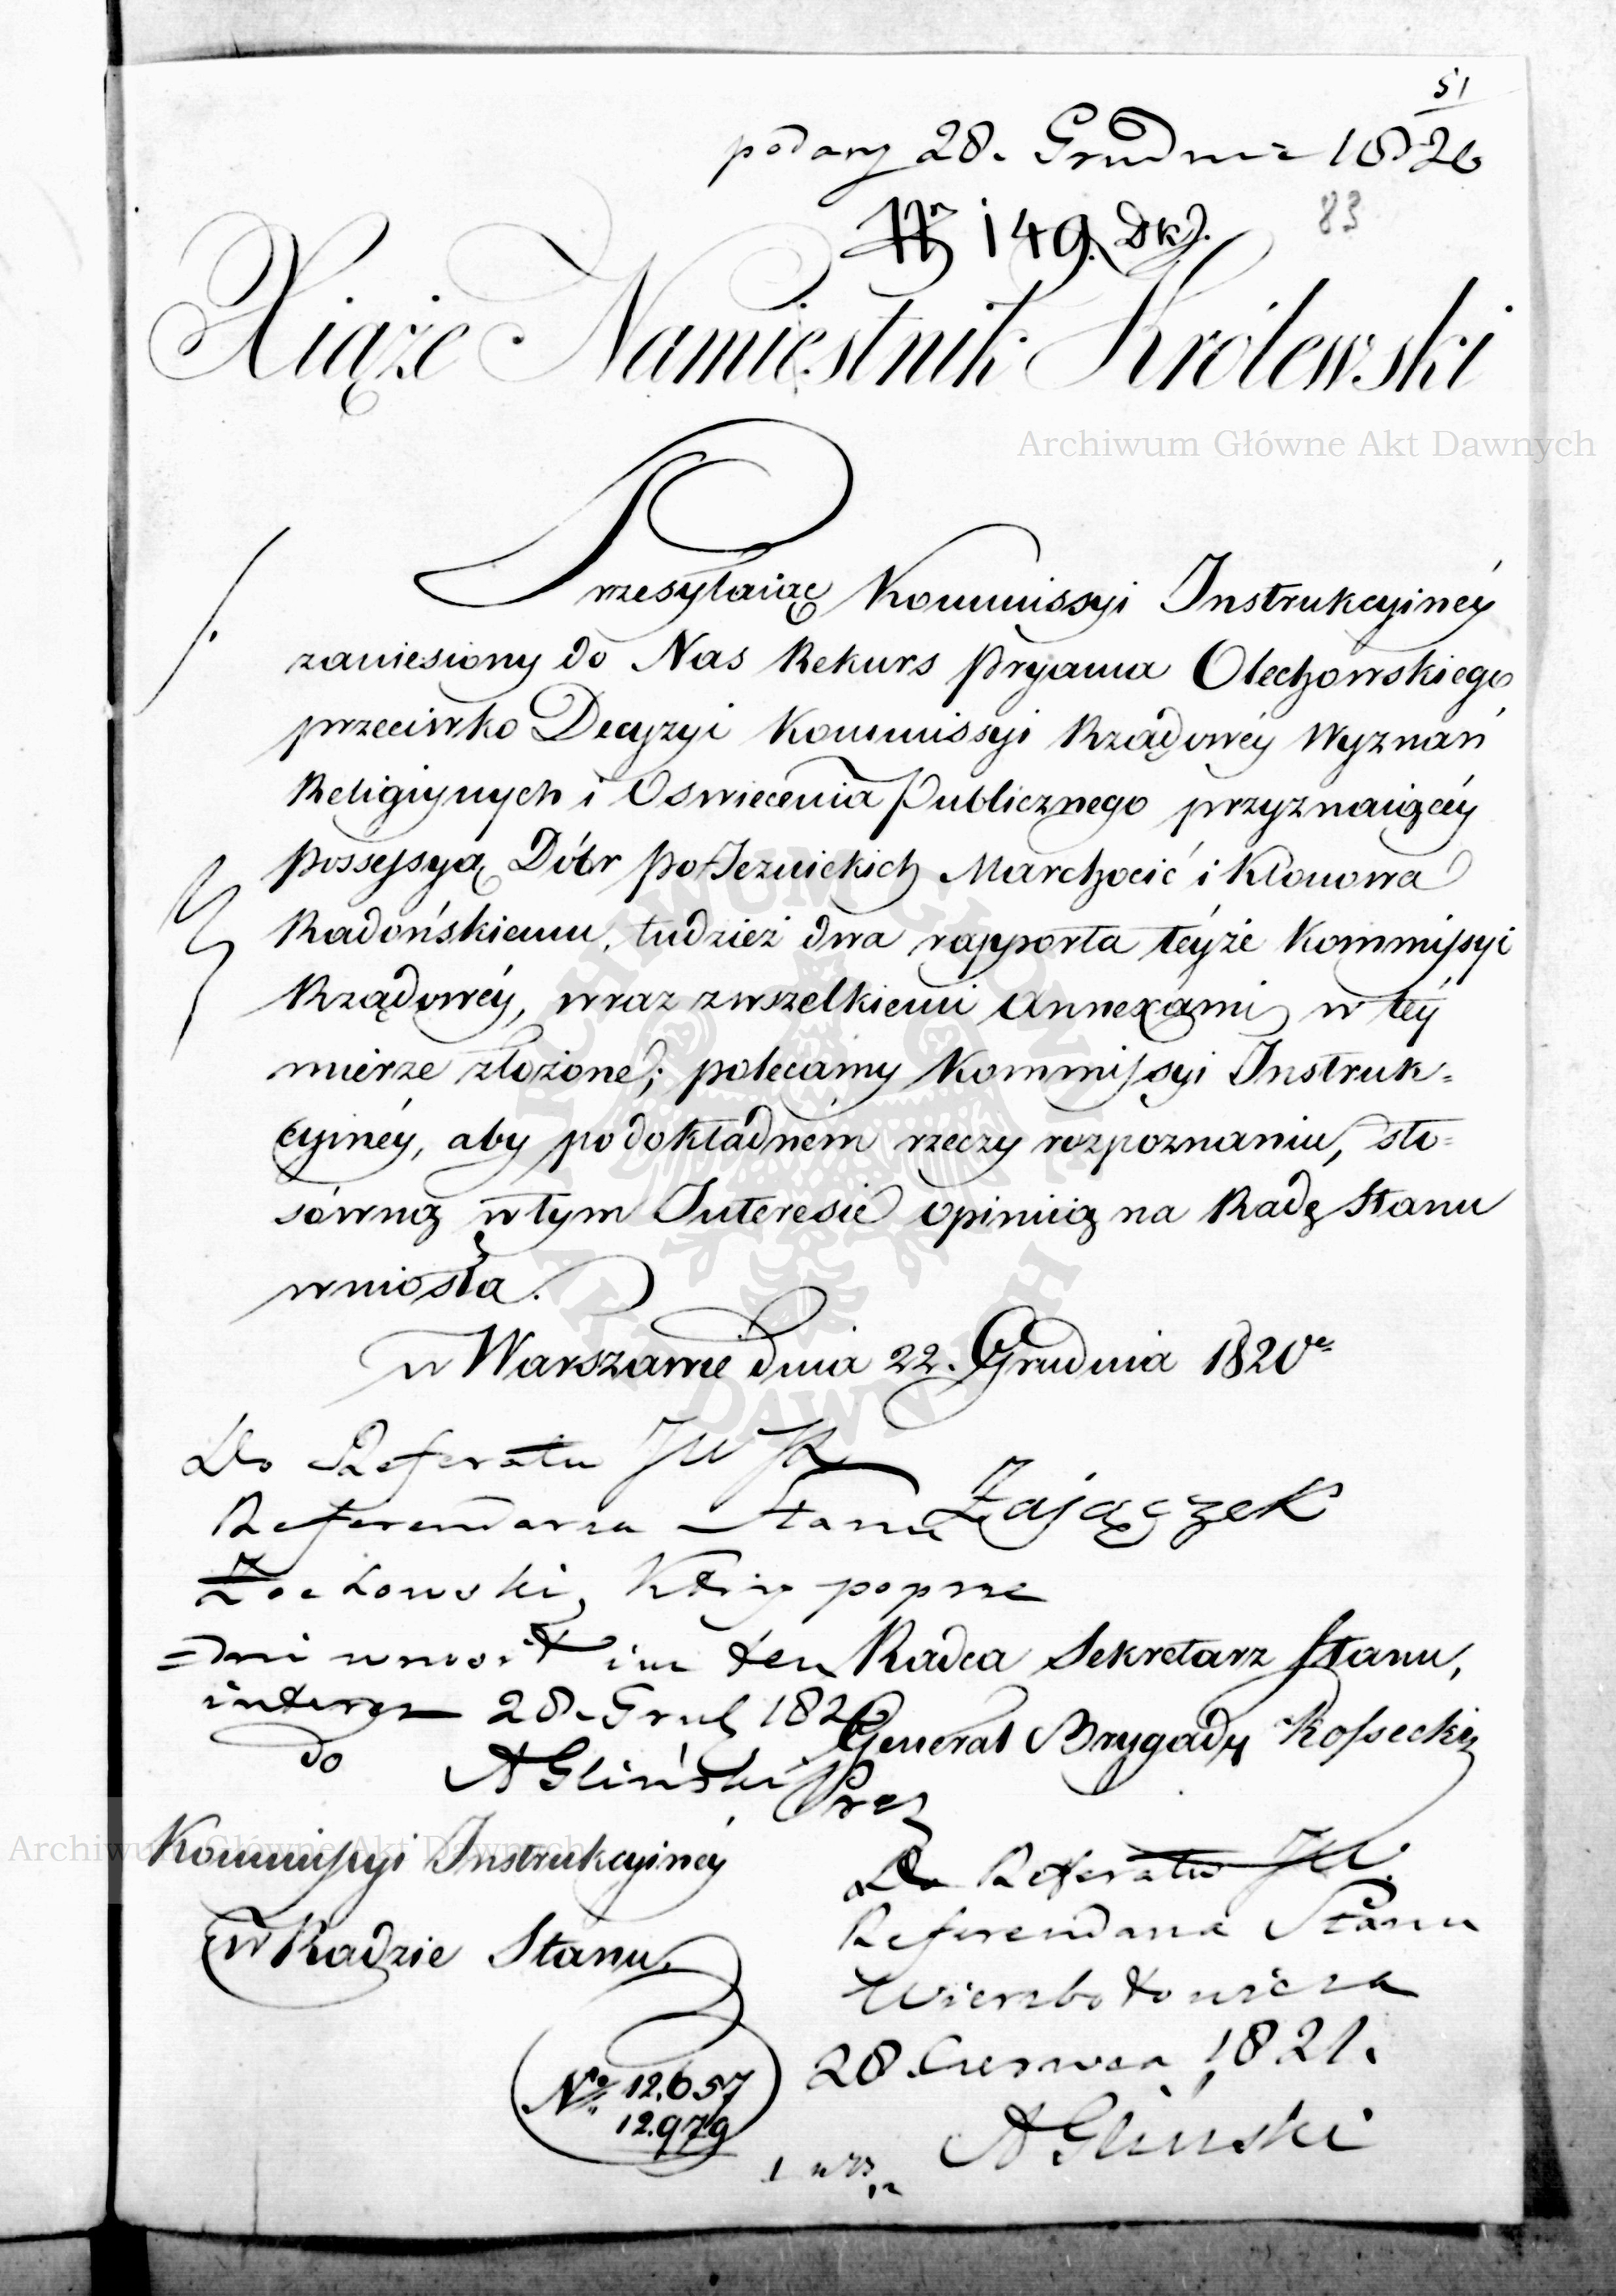 51
podany 28. Grudnia 1820
N 149. Dkł.
83
Xiąże Namiestnik Królewski
Archiwum Główne Akt Dawnych
Przesyłaiąc Kommissyi Instrukcyinéy
zaniesiony do Nas Rekurs Pryama Olechowskiego
przeciwko Decyzyi Kommissyi Rządowéy Wyznań
Religiynych i Oswiecenia Publicznego przyznaiącéy
Possessyą Dóbr PoJezuickich Marchocić i Klonowa
Radońskiemu, tudzież dwa rapporta téyże Kommissyi
Rządowéy, wraz zwszelkiemi Annexami w téy
mierze złożone; polecamy Kommissyi Instruk=
cyinéy, aby po dokładném rzeczy rozpoznaniu, sto=
sówną w tym Interesie opiniią na Radę Stanu
wniosła.
w Warszawie dnia 22. Grudnia 1820 r
Do Referatu JW
Referendarza Stanu
Zajączek
który poprze
=dni wnosił im ten
Radca Sekretarz Stanu,
interes 28. Grud 1820
Generał Brygady Kossecki
do
AGliński Prez
Kommissyi Instrukcyinéy
w Radzie Stanu.
Archiwum Główne Akt Dawnych
Do Referatu JW.
Referendarza Stanu
Wierzbołowicza
28 Czerwca 1821.
AGliński
No 12.657
12.979
ARCHIWUM GŁÓWNE AKT DAWNYCH